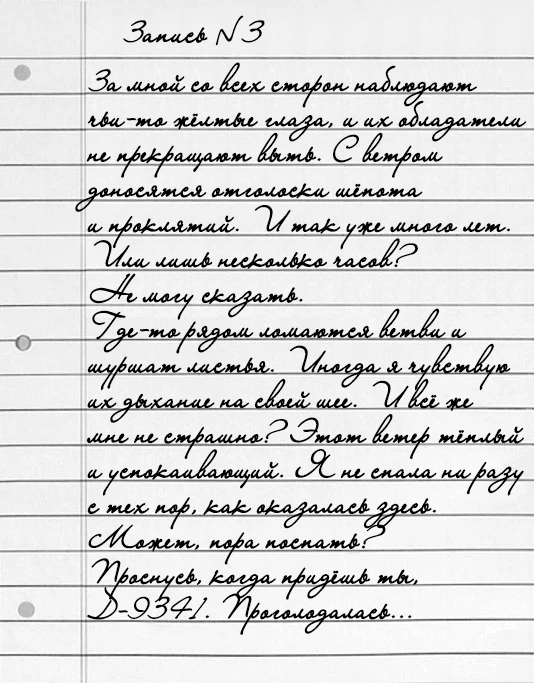 Запись N 3
За мной со всех сторон наблюдают
чьи-то жёлтые глаза, и их обладатели
не прекращают выть. С ветром
доносятся отголоски шёпота
и проклятий. И так уже много лет.
Или лишь несколько часов?
Не могу сказать.
Где-то рядом ломаются ветви и
шуршат листья. Иногда я чувствую
их дыхание на своей шее. И всё же
мне не страшно? Этот ветер тёплый
и успокаивающий. Я не спала ни разу
с тех пор, как оказалась здесь.
Может, пора поспать?
Проснусь, когда придёшь ты,
D-9341. Проголодалась...